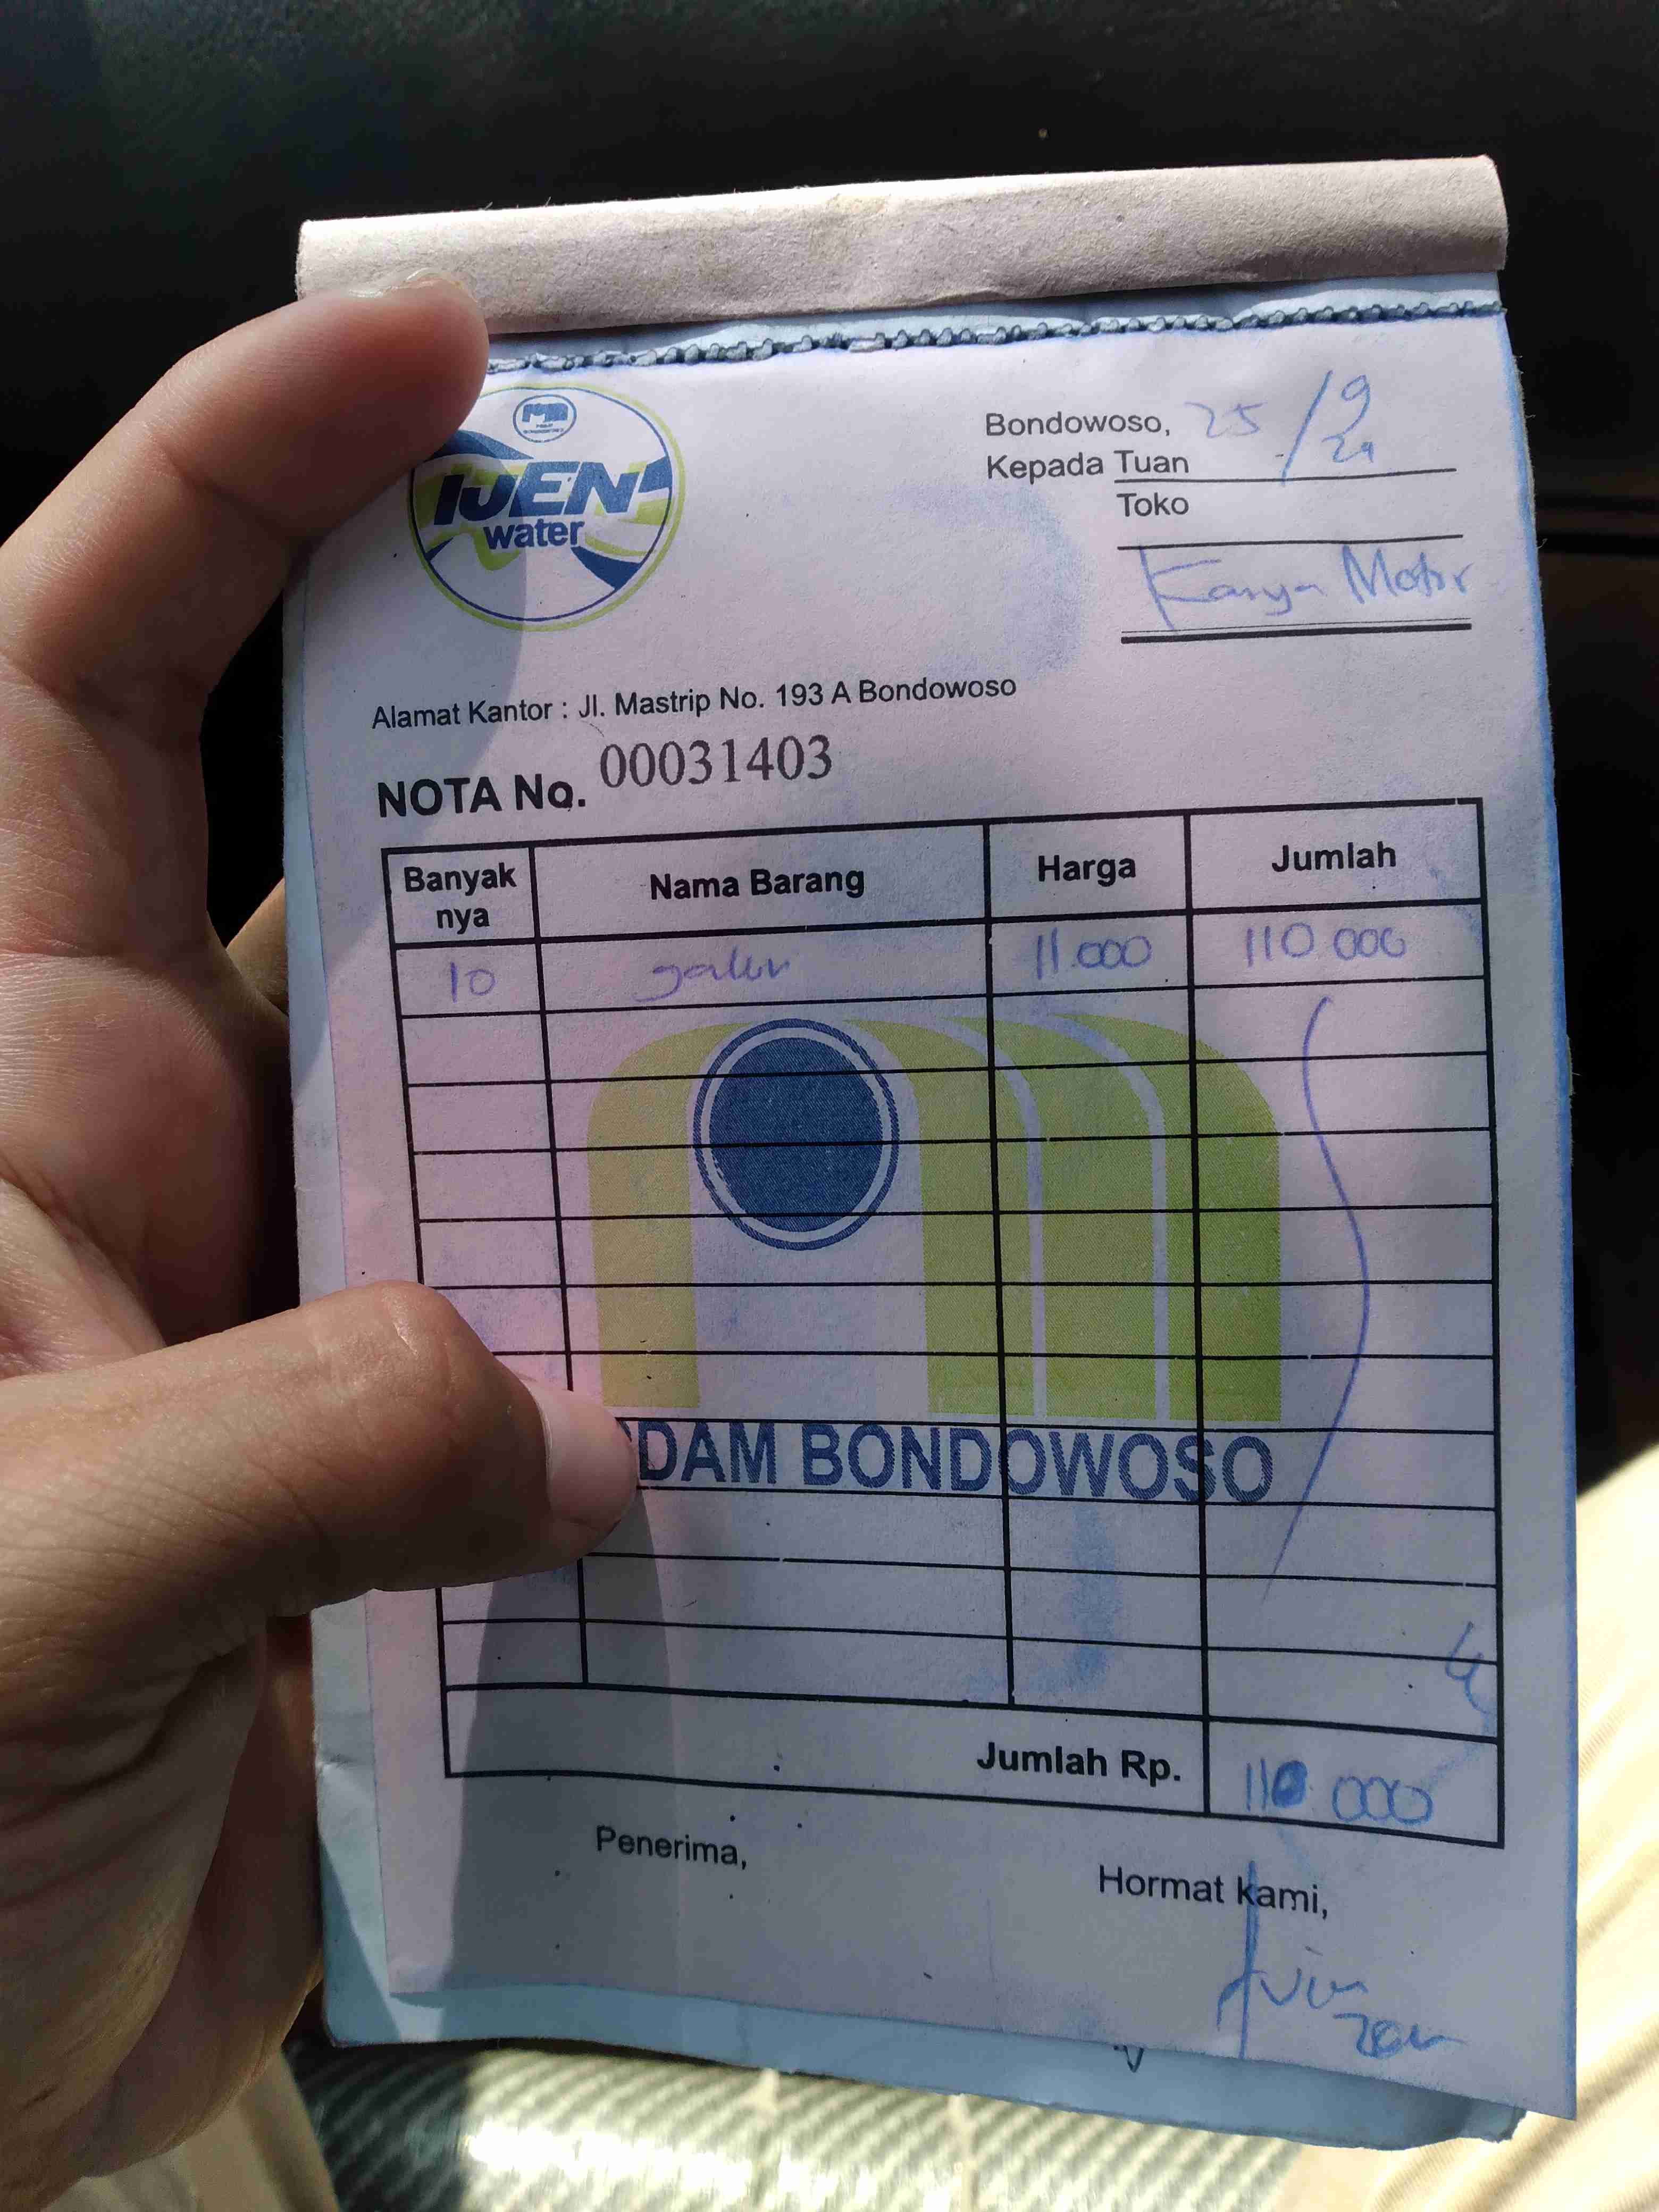 IJEN
water
Bondowoso, 25/9
Kepada Tuan
Toko
Karya Motor
Alamat Kantor : Jl. Mastrip No. 193 A Bondowoso
NOTA No. 00031403
Banyak nya Nama Barang Harga Jumlah
10 galon 11.000 110.000
DAM BONDOWOSO
Jumlah Rp. 110.000
Penerima,
Hormat kami,